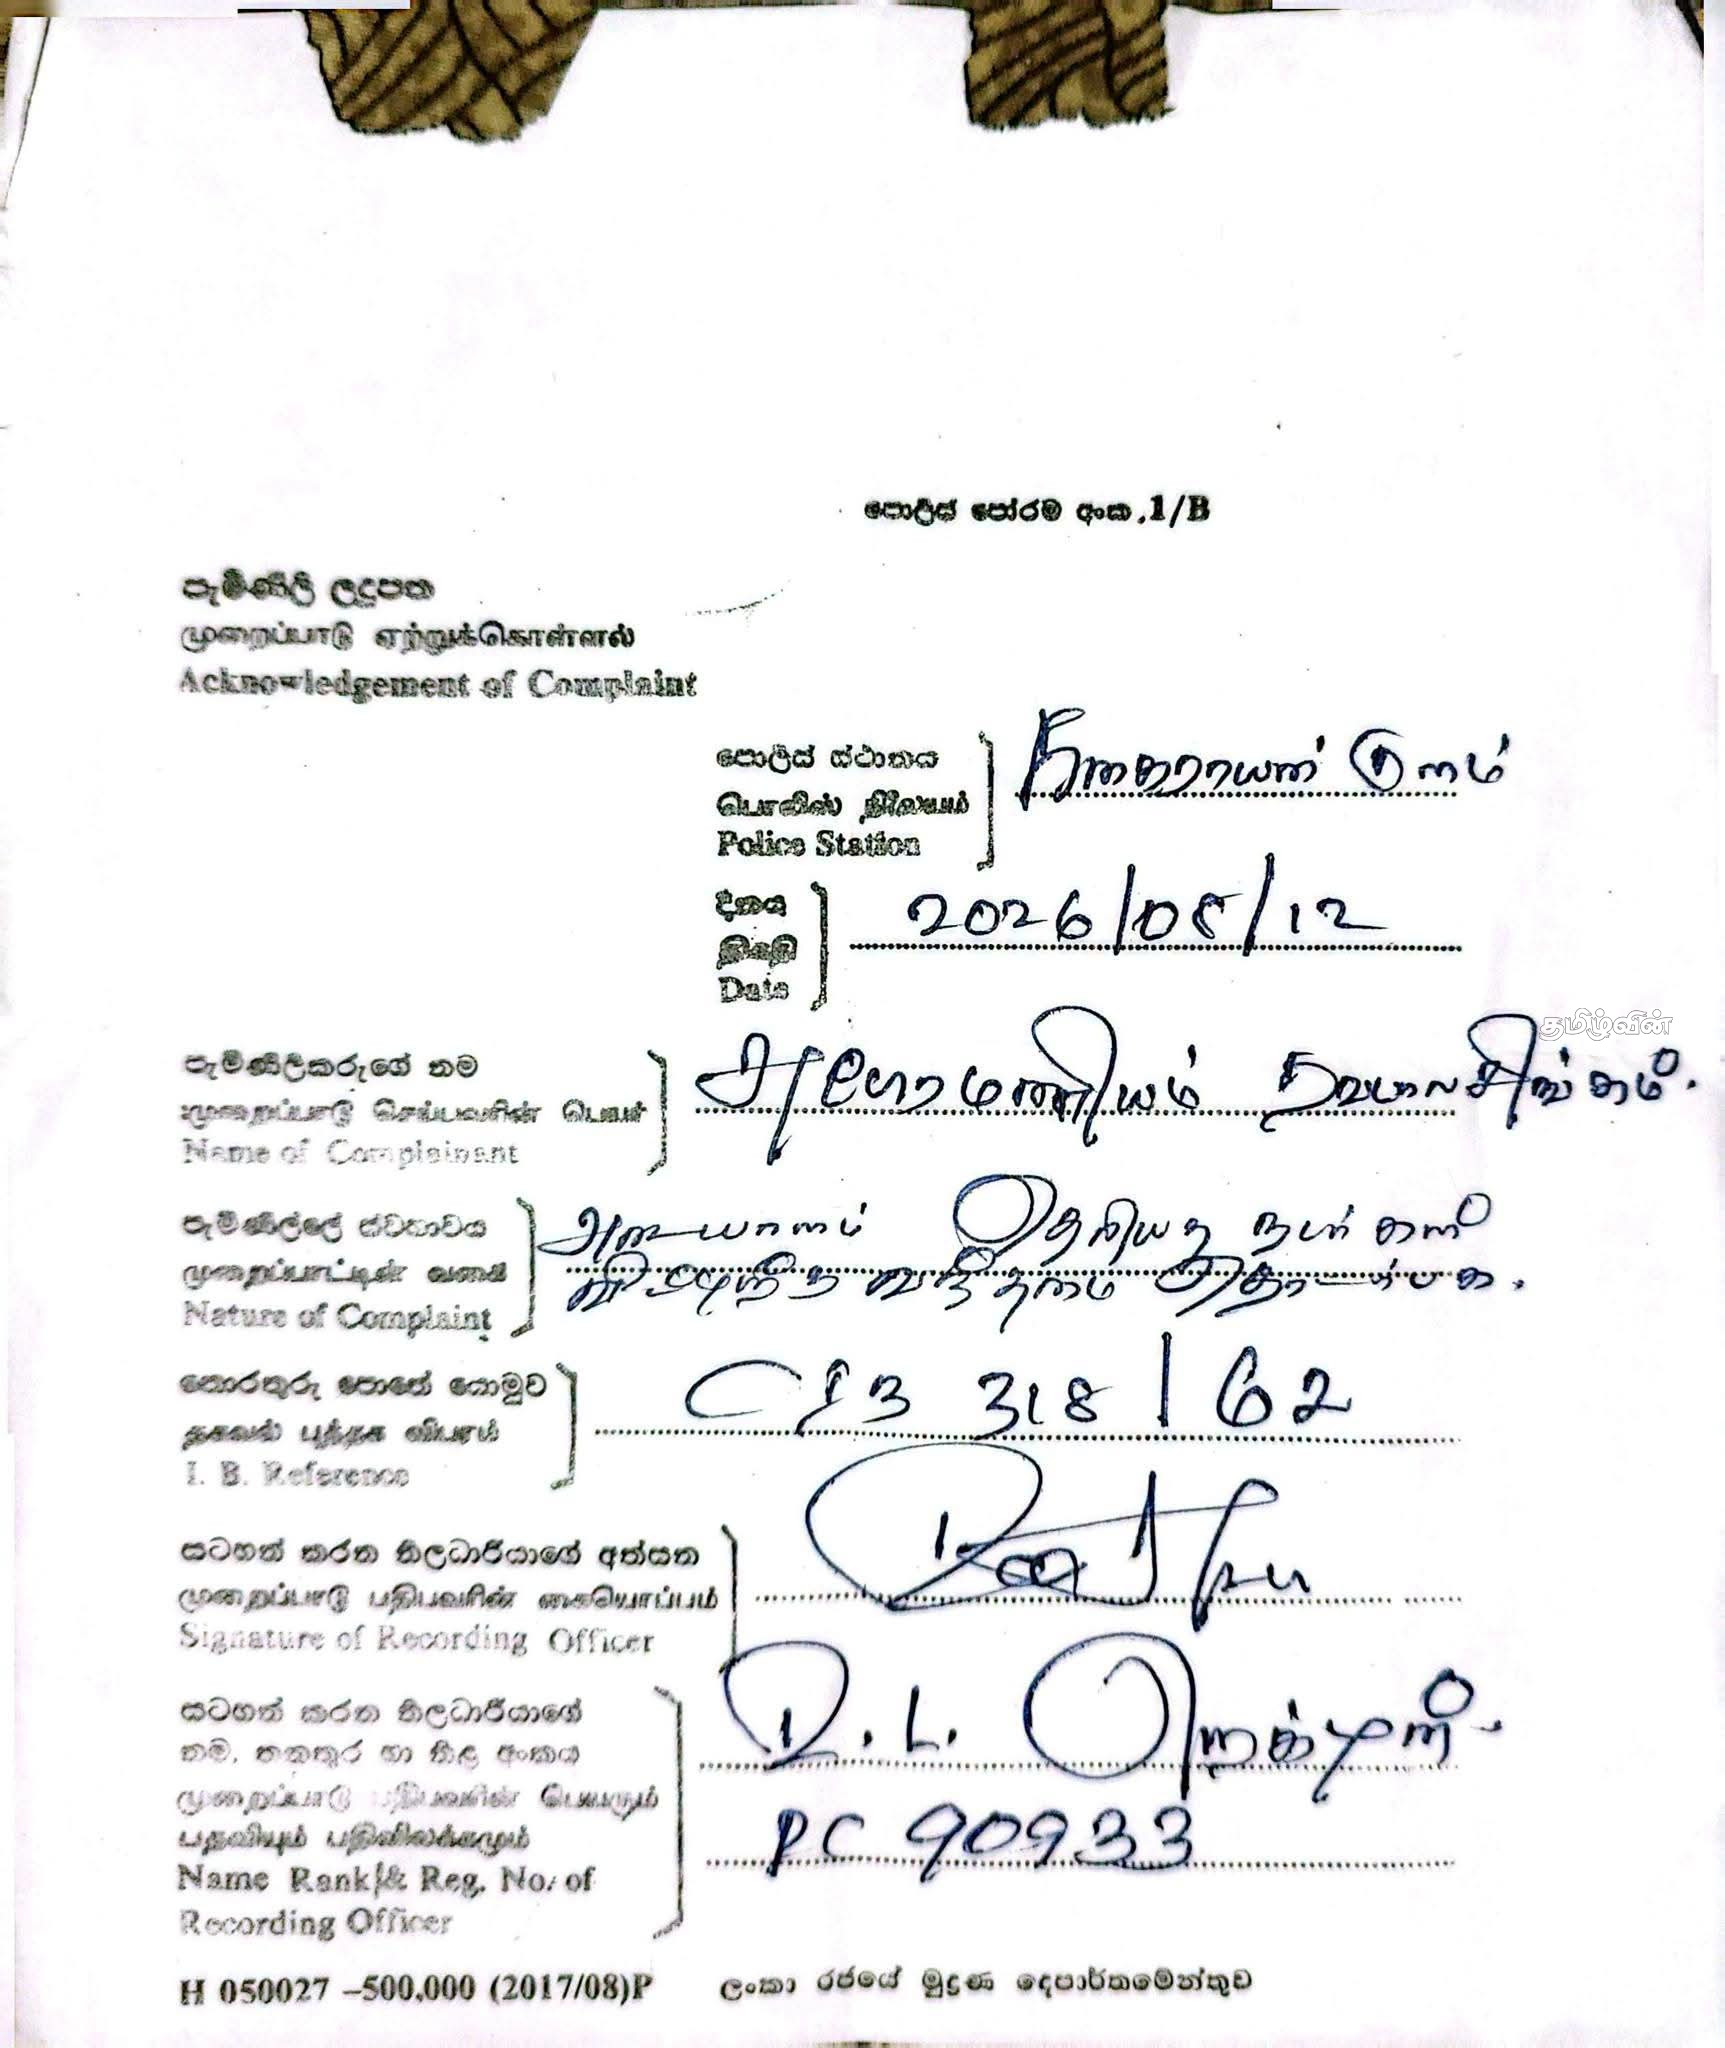 පොලිස් පෝරම අංක.1/B
පැමිණිලි ලදුපත
முறைப்பாடு ஏற்றுக்கொள்ளல்
Acknowledgement of Complaint
පොලිස් ස්ථානය
பொலிஸ் நிலையம்
Police Station
குளம்
දිනය
திகதி
Date
2026/08/12
தமிழ்வின்
පැමිණිලිකරුගේ නම
முறைப்பாடு செய்பவரின் பெயர்
Name of Complainant
පැමිණිල්ලේ ස්වභාවය
முறைப்பாட்டின் வகை
Nature of Complaint
அடையாளம் தெரியாத நபர்கள்
வீட்டிற்கு வந்தமை தொடர்பாக.
තොරතුරු පොතේ යොමුව
தகவல் புத்தக விபரம்
I. B. Reference
318/62
සටහන් කරන නිලධාරියාගේ අත්සන
முறைப்பாடு பதிபவரின் கையொப்பம்
Signature of Recording Officer
සටහන් කරන නිලධාරියාගේ
නම, තනතුර හා නිල අංකය
முறைப்பாடு பதிபவரின் பெயரும்
பதவியும் பதிவிலக்கமும்
Name Rank & Reg. No. of
Recording Officer
D. L.
PC 90933
H 050027 –500,000 (2017/08)P ලංකා රජයේ මුද්‍රණ දෙපාර්තමේන්තුව